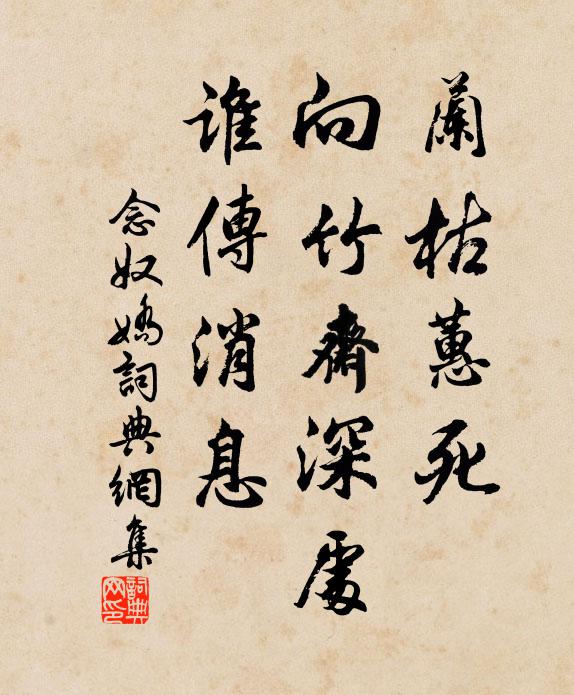 蘭枯蕙死
向竹齋深處
誰傳消息
念奴嬌詞典網集
詞典
网印